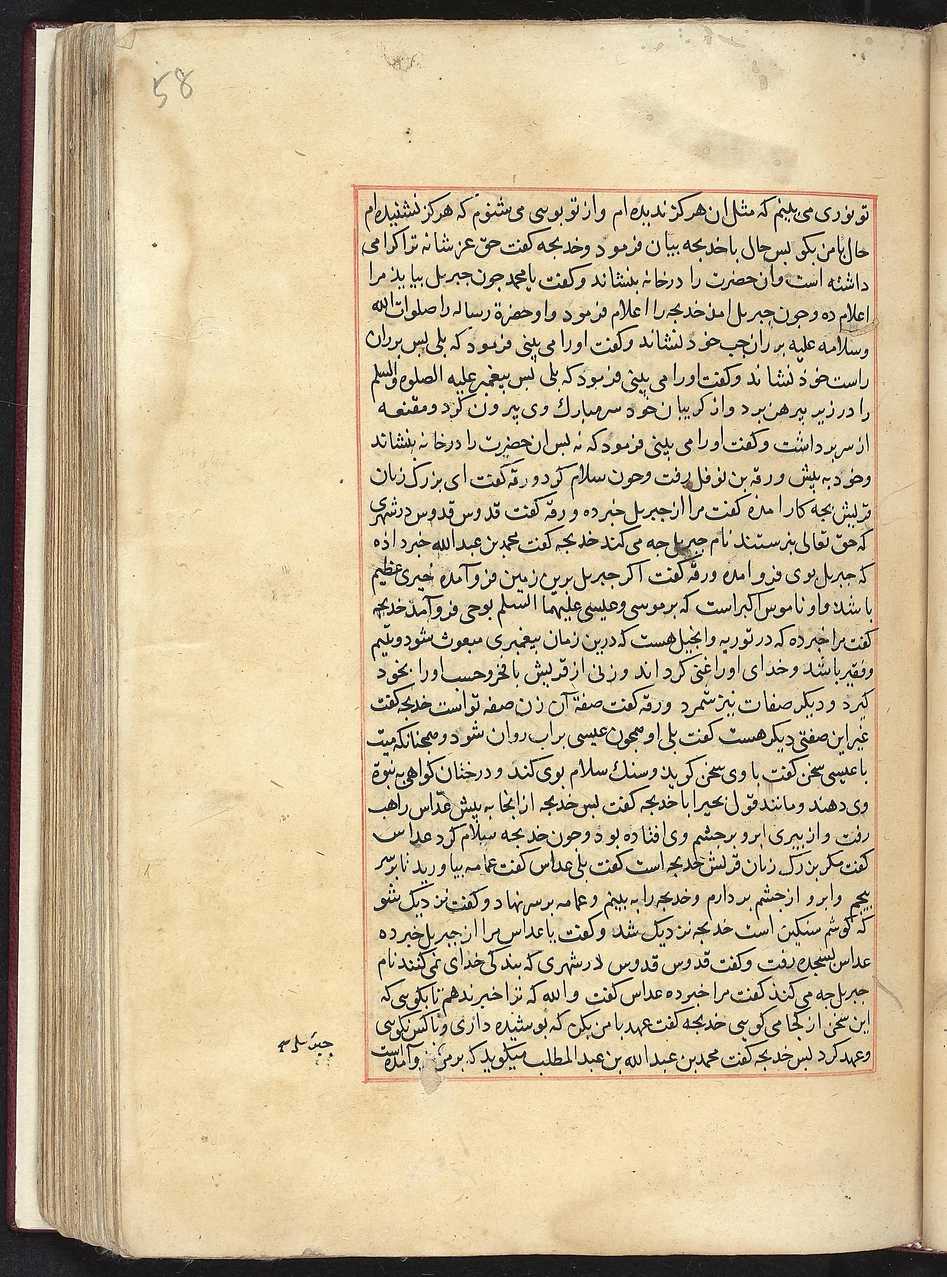 58
تو نوری می بینم که مثل ان هرکز ندیده ام واز تو بویی می شنوم که هرکز نشنیده ام
حال با من بکو بس حال با خدیجه بیان فرمود و خدیجه کفت حق عز شانه ترا کرامی
داشته است وان حضرت را در خانه بنشاند وکفت یا محمد جون جبریل بیاید مرا
اعلام ده وجون جبریل امد خدیجه را اعلام فرمود واو حضرة رساله را صلوات الله
وسلامه علیه بر ران جب خود نشاند وکفت اورا می بینی فرمود که بلی بس بر ران
راست خود نشاند وکفت اورا می بینی فرمود که بلی بس بیغمبر علیه الصلوه والسلم
را در زیر بیرهن برد واز کریبان خود سر مبارک وی بیرون کرد ومقنعه
از سر برداشت وکفت اورا می بینی فرمود که نه بس ان حضرت را در خانه بنشاند
وخود به بیش ورقه بن نوفل رفت وجون سلام کرد ورقه کفت ای بزرک زنان
قریش بجه کار امده کفت مرا از جبریل خبر ده ورقه کفت قدوس قدوس در شهری
که حق تعالی نبرستند نام جبریل جه می کند خدیجه کفت محمد بن عبد الله خبر داده
که جبریل بوی فرو امده ورقه کفت اکر جبریل برین زمین فرو آمده خیری عظیم
باشد واو ناموس اکبر است که بر موسی وعیسی علیهما السلم بوحی فرو آمد خدیجه
کفت مرا خبر ده که در توریه وانجیل هست که درین زمان بیغمبری مبعوث شود ویتیم
وفقیر باشد وخدای اورا غنی کرداند وزنی از قریش با فخر وحسب اورا بخود
کیرد ودیکر صفات نیز شمرد ورقه کفت صفه آن زن صفه تو است خدیجه کفت
غیر این صفتی دیکر هست کفت بلی او همجون عیسی بر اب روان شود وهمجنانکه میت
با عیسی سخن کفت با وی سخن کوید وسنک سلام بوی کند ودرختان کواهی به نبوة
وی دهند ومانند قول بحیرا با خدیجه کفت بس خدیجه از انجا به بیش عداس راهب
رفت واز بیری ابرو بر جشم وی افتاده بود وجون خدیجه سلام کرد عداس
کفت مکر بزرک زنان قریش خدیجه است کفت بلی عداس کفت عمامه بیاورید تا بر سر
بیجم وابرو از جشم بردارم وخدیجه را به بینم وعمامه بر سر نهاد وکفت نزدیک شو
که کوشم سنکین است خدیجه نزدیک شد وکفت یا عداس مرا از جبریل خبر ده
عداس بسجده رفت وکفت قدوس قدوس در شهری که بندکی خدای نمی کنند نام
جبریل جه می کند کفت مرا خبر ده عداس کفت والله که ترا خبر ندهم تا بکویی که
این سخن از کجا می کویی خدیجه کفت عهد با من بکن که بوشیده داری وبا کس نکویی
وعهد کرد بس خدیجه کفت محمد بن عبد الله بن عبد المطلب میکوید که بر من فرو آمده است